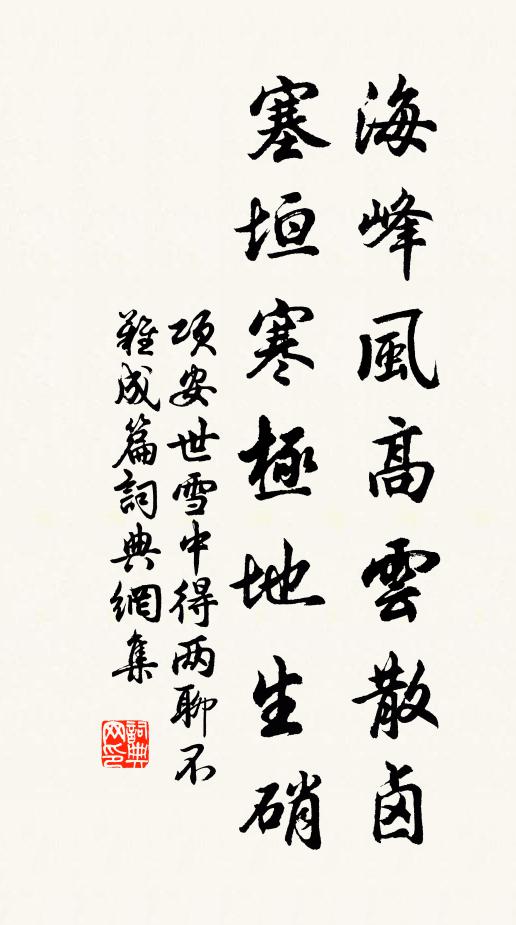 海峰風高雲散鹵
塞垣寒極地生硝
项安世雪中得两聊不
難成篇詞典網集
詞典
网印